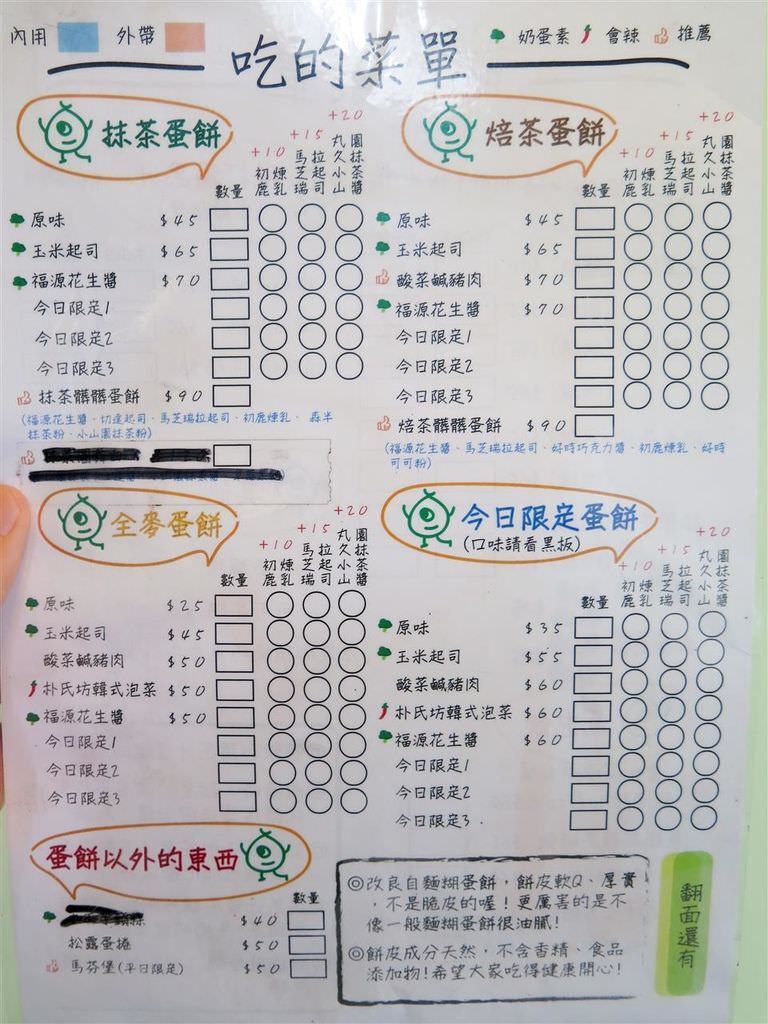 內用 外帶
吃的菜單
奶蛋素 會辣 推薦
抹茶蛋餅
數量
+10 初鹿煉乳
+15 馬芝瑞拉起司
+20 丸久小山園抹茶醬
原味 $45
玉米起司 $65
福源花生醬 $70
今日限定1
今日限定2
今日限定3
抹茶髒髒蛋餅 $90
(福源花生醬、切達起司、馬芝瑞拉起司、初鹿煉乳、森半
抹茶粉、小山園抹茶粉)
焙茶蛋餅
數量
+10 初鹿煉乳
+15 馬芝瑞拉起司
+20 丸久小山園抹茶醬
原味 $45
玉米起司 $65
酸菜鹹豬肉 $70
福源花生醬 $70
今日限定1
今日限定2
今日限定3
焙茶髒髒蛋餅 $90
(福源花生醬、馬芝瑞拉起司、好時巧克力醬、初鹿煉乳、好時
可可粉)
全麥蛋餅
數量
+10 初鹿煉乳
+15 馬芝瑞拉起司
+20 丸久小山園抹茶醬
原味 $25
玉米起司 $45
酸菜鹹豬肉 $50
朴氏坊韓式泡菜 $50
福源花生醬 $50
今日限定1
今日限定2
今日限定3
今日限定蛋餅
(口味請看黑板)
數量
+10 初鹿煉乳
+15 馬芝瑞拉起司
+20 丸久小山園抹茶醬
原味 $35
玉米起司 $55
酸菜鹹豬肉 $60
朴氏坊韓式泡菜 $60
福源花生醬 $60
今日限定1
今日限定2
今日限定3
蛋餅以外的東西
數量
$40
松露蛋捲 $50
馬芬堡(平日限定) $50
◎改良自麵糊蛋餅,餅皮軟Q、厚實
,不是脆皮的喔!更厲害的是不
像一般麵糊蛋餅很油膩!
◎餅皮成分天然,不含香精、食品
添加物!希望大家吃得健康開心!
翻面還有